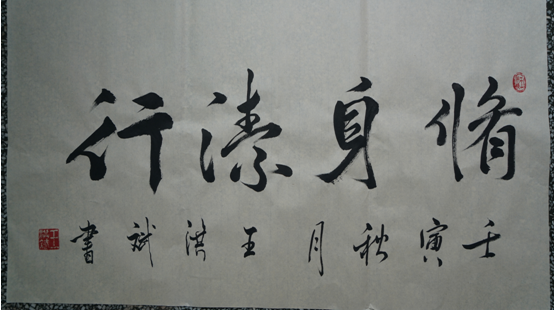 脩身潔行
壬寅秋月王洪斌書